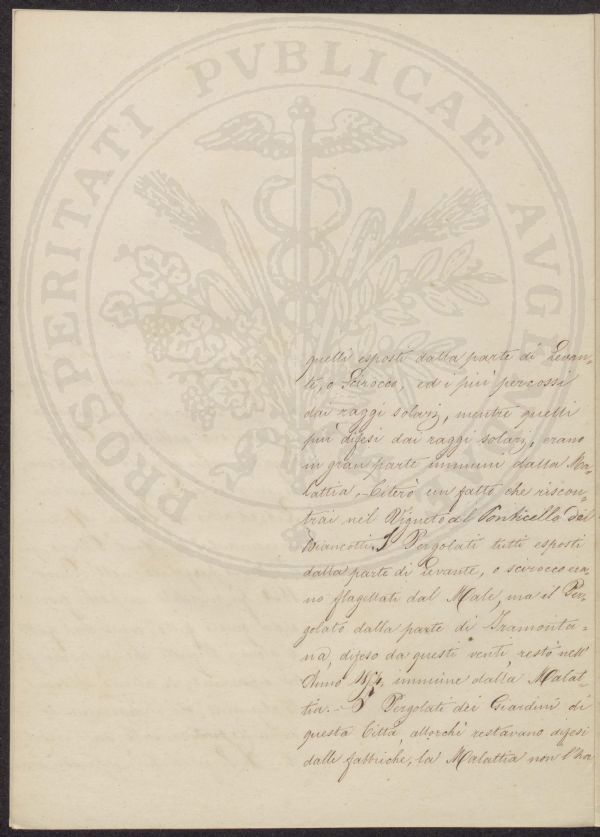 PROSPERITATI PVBLICAE AVGE
quelli esposti dalla parte di Levan-
te, o Scirocco, ed i più percossi
dai raggi solarj, mentre quelli
più difesi dai raggi solarj, erano
in gran parte immuni dalla Ma-
lattia. - Citerò un fatto che riscon-
trai nel Vigneto al Ponticello dei
Biancotti. I Pergolati tutti esposti
dalla parte di Levante, o scirocco era-
no flagellati dal Male, ma il Per-
golato dalla parte di Tramonta-
na, difeso da questi venti, restò nell'
Anno immune dalla Malat-
tia. - I Pergolati dei Giardini di
questa Città, allorchè restavano difesi
dalle fabbriche, la Malattia non l'ha